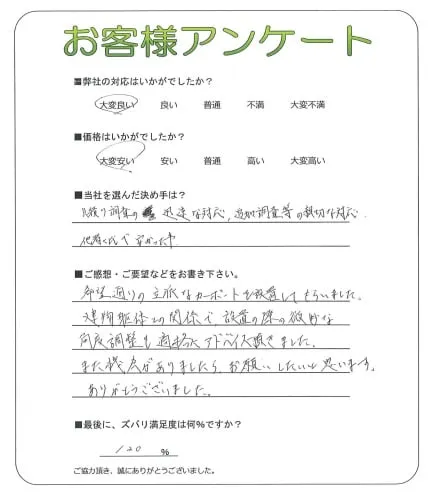 お客様アンケート
■弊社の対応はいかがでしたか?
大変良い 良い 普通 不満 大変不満
■価格はいかがでしたか?
大変安い 安い 普通 高い 大変高い
■当社を選んだ決め手は?
見積り調査の 迅速な対応、追加調査等の親切な対応.
他者くらべ安かった事
■ご感想・ご要望などをお書き下さい。
希望通りの立派なカーポートを設置してもらいました。
建物躯体との関係で、設置の際の微妙な
角度調整も適切にアドバイス頂きました。
また機会がありましたら、お願いしたいと思います。
ありがとうございました。
■最後に、ズバリ満足度は何%ですか?
120 %
ご協力頂き、誠にありがとうございました。